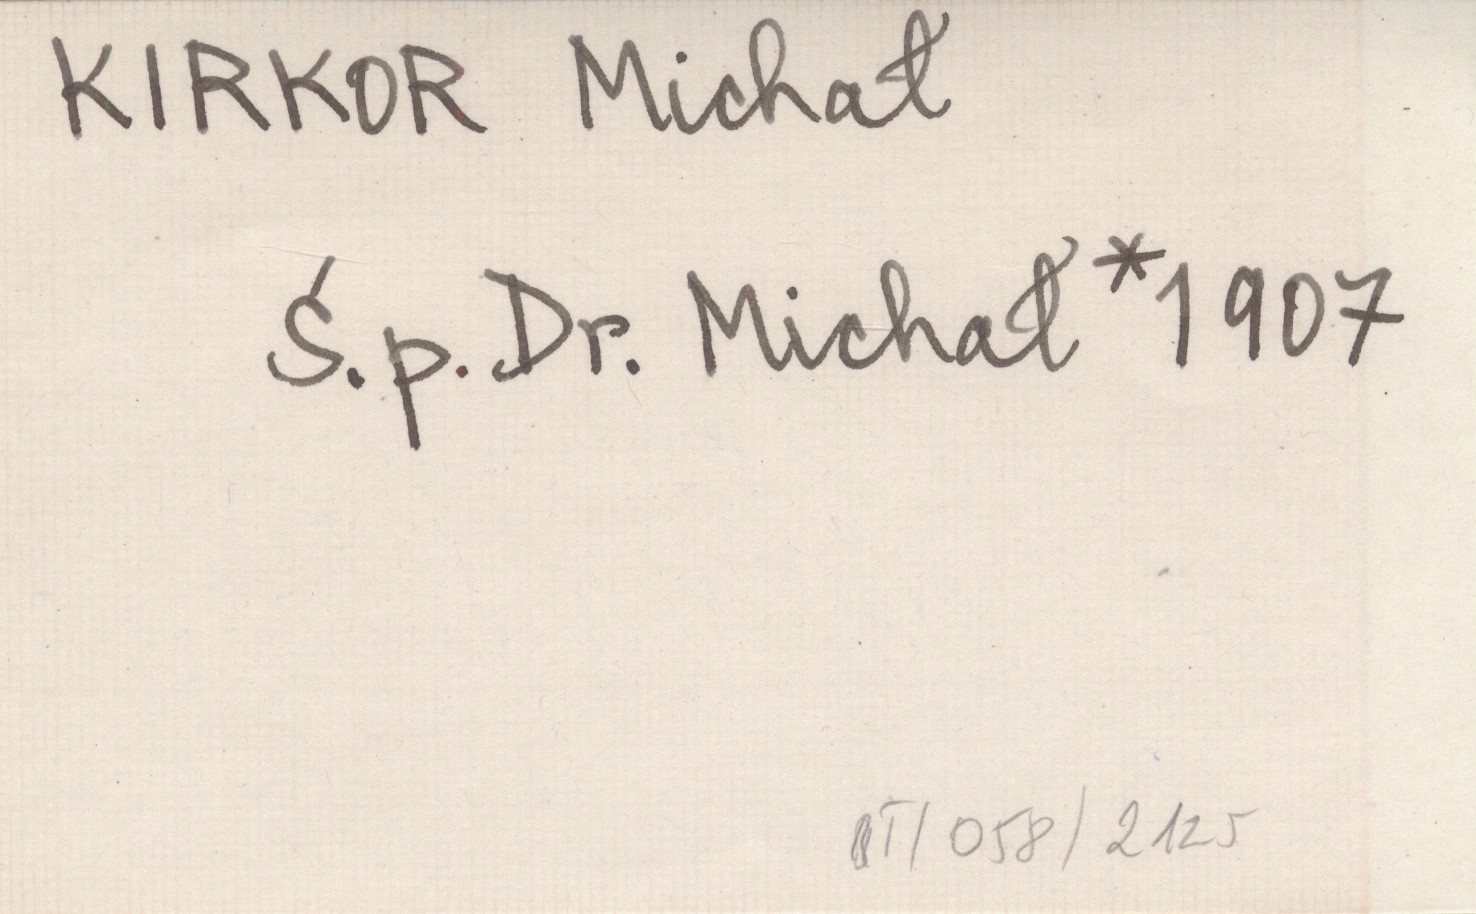 KIRKOR Michał
Ś.p. Dr. Michał *1907
T/058/2125